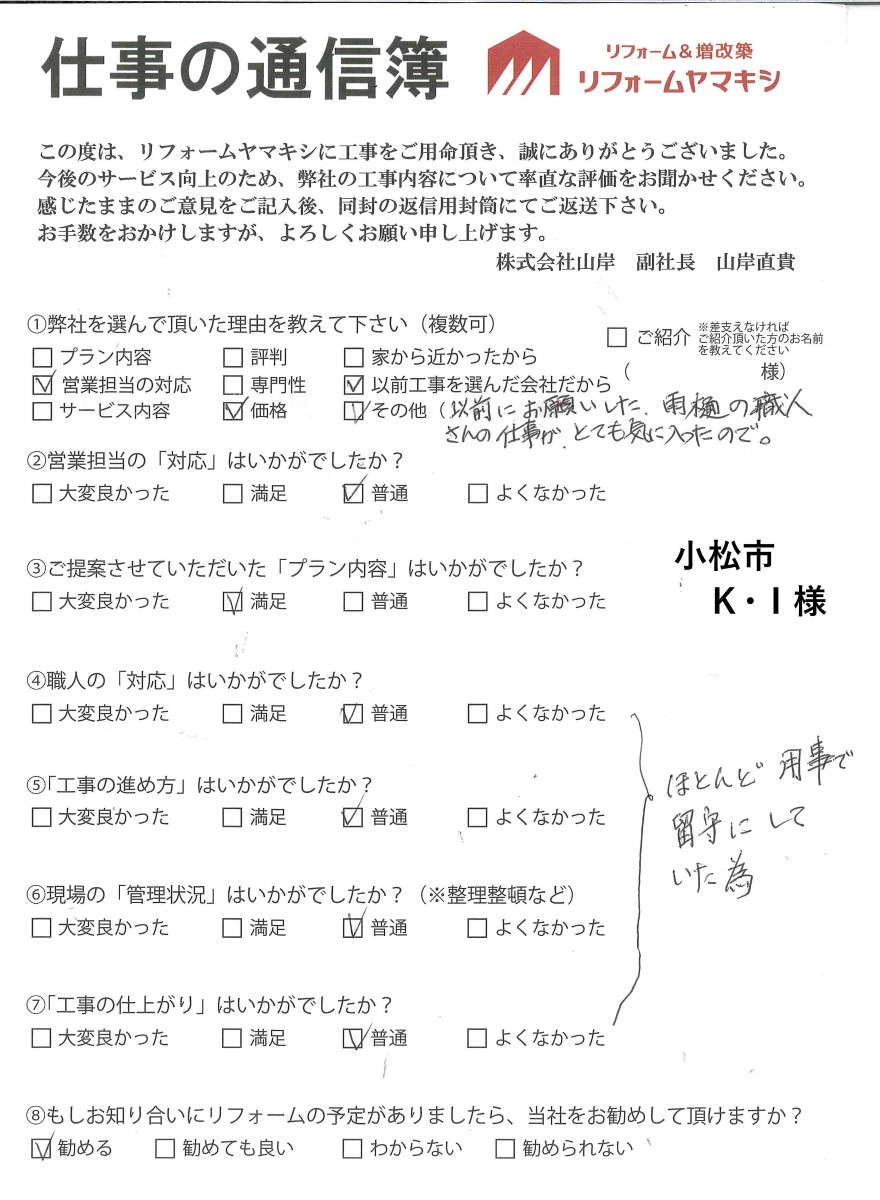 仕事の通信簿
リフォーム&増改築
リフォームヤマキシ
この度は、リフォームヤマキシに工事をご用命頂き、誠にありがとうございました。
今後のサービス向上のため、弊社の工事内容について率直な評価をお聞かせください。
感じたままのご意見をご記入後、同封の返信用封筒にてご返送下さい。
お手数をおかけしますが、よろしくお願い申し上げます。
株式会社山岸 副社長 山岸直貴
①弊社を選んで頂いた理由を教えて下さい(複数可)
□ご紹介 ※差支えなければ
ご紹介頂いた方のお名前
を教えてください
□プラン内容 □評判 □家から近かったから
☑営業担当の対応 □専門性 ☑以前工事を選んだ会社だから ( 様)
□サービス内容 ☑価格 ☑その他(以前にお願いした、雨樋の職人
さんの仕事が、とても気に入ったので。
②営業担当の「対応」はいかがでしたか?
□大変良かった □満足 ☑普通 □よくなかった
小松市
K・I様
③ご提案させていただいた「プラン内容」はいかがでしたか?
□大変良かった ☑満足 □普通 □よくなかった
④職人の「対応」はいかがでしたか?
□大変良かった □満足 ☑普通 □よくなかった
⑤「工事の進め方」はいかがでしたか?
□大変良かった □満足 ☑普通 □よくなかった
ほとんど用事で
留守にして
いた為
⑥現場の「管理状況」はいかがでしたか?(※整理整頓など)
□大変良かった □満足 ☑普通 □よくなかった
⑦「工事の仕上がり」はいかがでしたか?
□大変良かった □満足 ☑普通 □よくなかった
⑧もしお知り合いにリフォームの予定がありましたら、当社をお勧めして頂けますか?
☑勧める □勧めても良い □わからない □勧められない